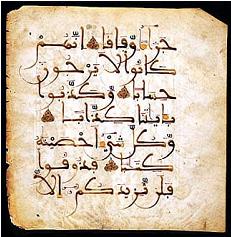 جزاء وفاقا انهم
كانوا لا يرجون
حسابا وكذبوا
بايتنا كذابا
وكل شيء احصينه
كتبا فذوقوا
فلن نزيدكم الا